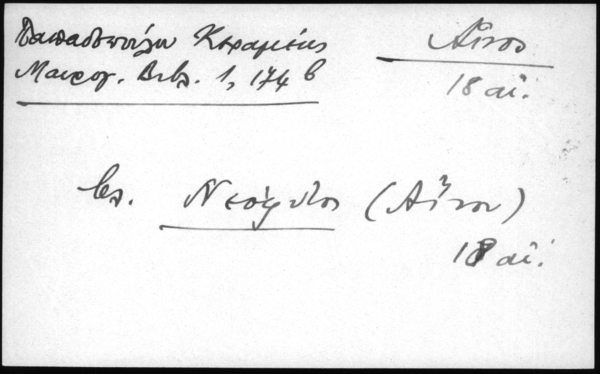 Παπαδοπούλου Κεραμεύς
Μαυρογ. Βιβλ. 1, 174 β
Αἶνος
18 αἰ.
βλ. Νεόφυτος (Αἴνου)
18 αἰ.